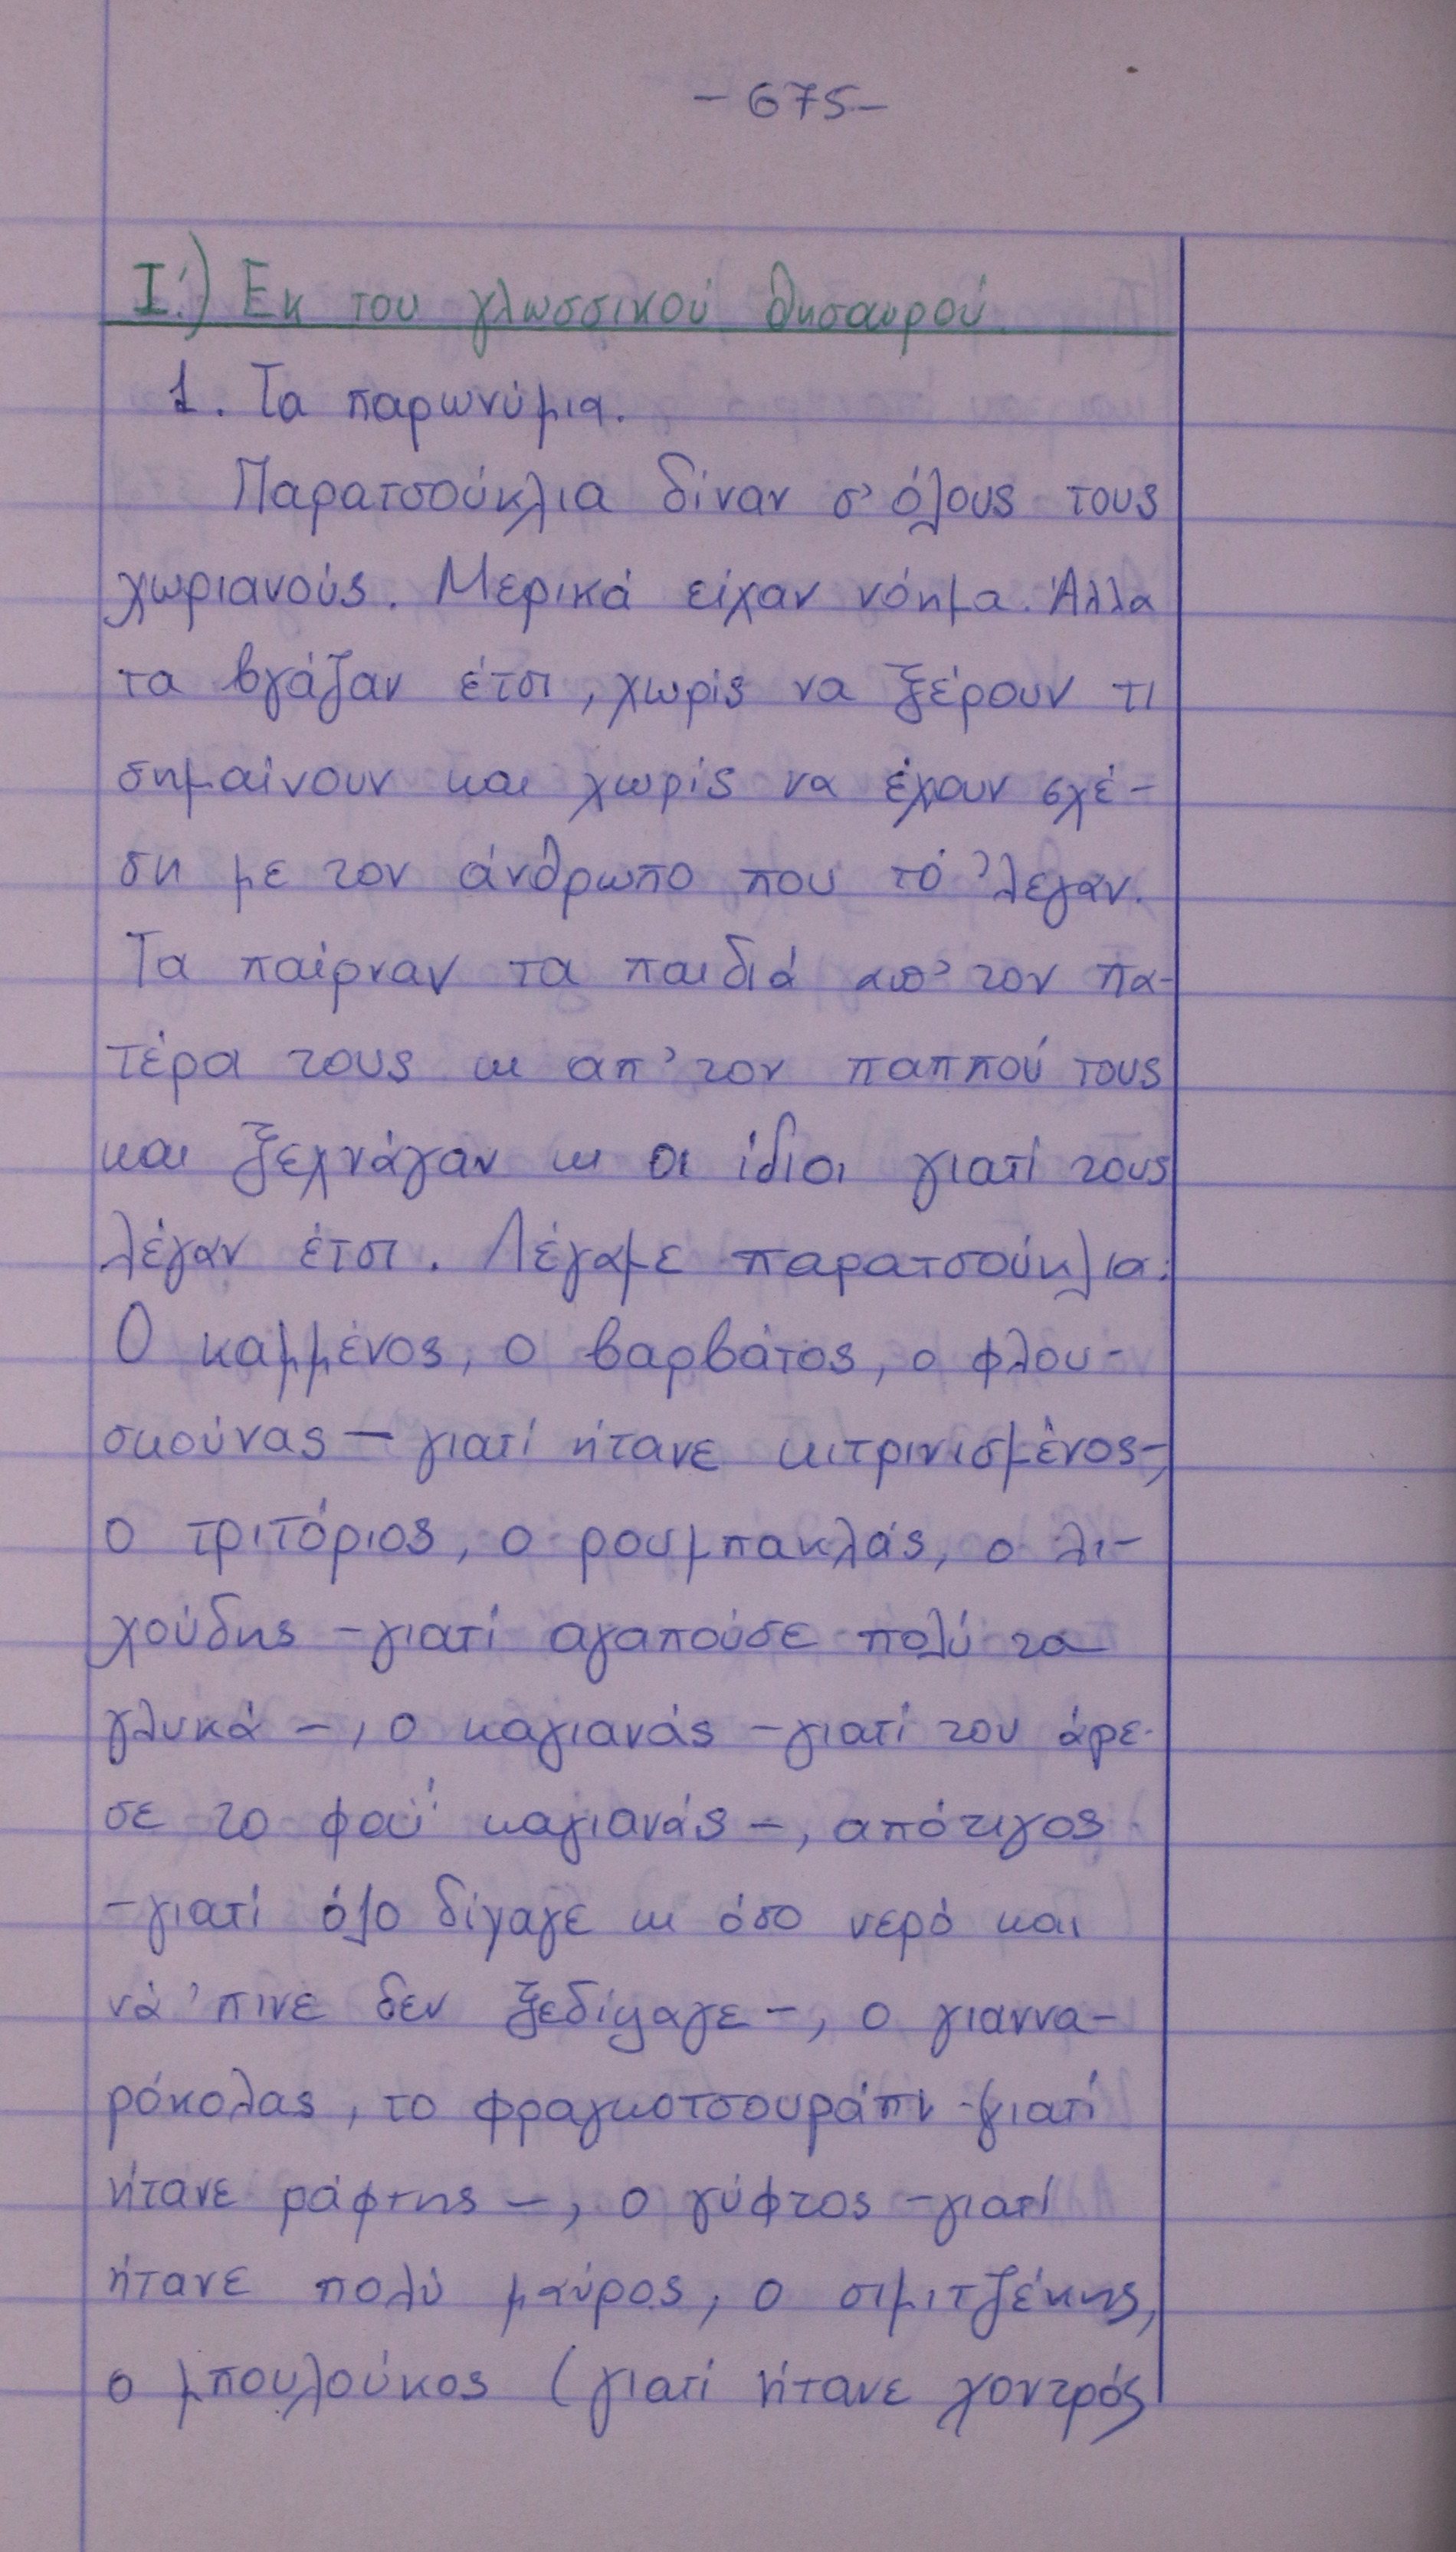 - 675 -
Ι΄.) Εκ του γλωσσικού θησαυρού
1. Τα παρωνύμια.
Παρατσούκλια δίναν σ' όλους τους
χωριανούς. Μερικά είχαν νόημα. Άλλα
τα βγάζαν έτσι, χωρίς να ξέρουν τι
σημαίνουν και χωρίς να έχουν σχέ-
ση με τον άνθρωπο που τό 'λεγαν.
Τα παίρναν τα παιδιά απ' τον πα-
τέρα τους κι απ' τον παππού τους
και ξεχνάγαν κι οι ίδιοι γιατί τους
λέγαν έτσι. Λέγαμε παρατσούκλια:
Ο καμμένος, ο βαρβάτος, ο φλου-
σκούνας - γιατί ήτανε κιτρινισμένος-,
ο τριτόριος, ο ρουμπακλάς, ο λι-
χούδης - γιατί αγαπούσε πολύ τα
γλυκά -, ο καγιανάς - γιατί του άρε-
σε το φαΐ καγιανάς -, απότιγος
- γιατί όλο δίψαγε κι όσο νερό και
νά 'πινε δεν ξεδίψαγε -, ο γιαννα-
ρόκολας, το φραγκοτσουράπι - γιατί
ήτανε ράφτης -, ο γύφτος - γιατί
ήτανε πολύ μαύρος, ο σιμιτζέκης,
ο μπουλούκος (γιατί ήτανε χοντρός